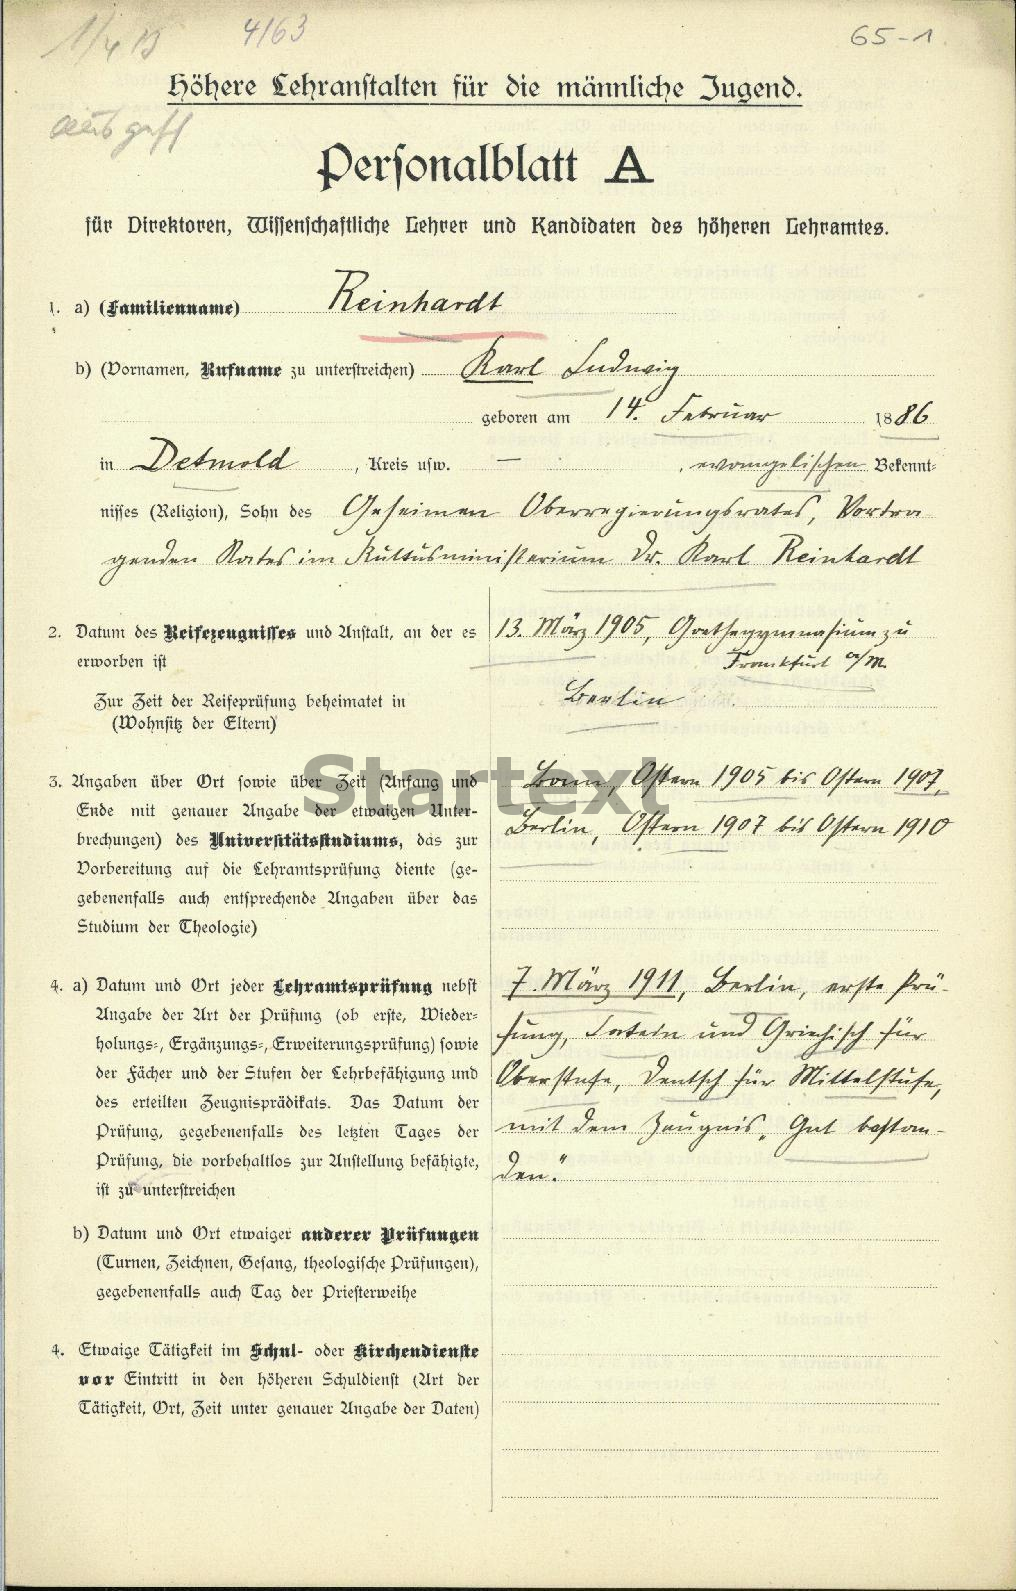 4/63
65-1
Höhere Lehranstalten für die männliche Jugend.
Personalblatt A
für Direktoren, Wissenschaftliche Lehrer und Kandidaten des höheren Lehramtes.
1. a) (Familienname) Reinhardt
b) (Vornamen, Rufname zu unterstreichen) Karl Ludwig
geboren am 14. Februar 1886
in Detmold, Kreis usw. — , evangelischen Bekennt-
nisses (Religion), Sohn des Geheimen Oberregierungsrates, Vortra
genden Rates im Kultusministerium Dr. Karl Reinhardt
2. Datum des Reifezeugnisses und Anstalt, an der es
erworben ist
13. März 1905, Goethegymnasium zu
Frankfurt a/M.
Zur Zeit der Reifeprüfung beheimatet in
(Wohnsitz der Eltern)
Berlin
3. Angaben über Ort sowie über Zeit (Anfang und
Ende mit genauer Angabe der etwaigen Unter-
brechungen) des Universitätsstudiums, das zur
Vorbereitung auf die Lehramtsprüfung diente (ge-
gebenenfalls auch entsprechende Angaben über das
Studium der Theologie)
Bonn, Ostern 1905 bis Ostern 1907,
Berlin, Ostern 1907 bis Ostern 1910
Startext
4. a) Datum und Ort jeder Lehramtsprüfung nebst
Angabe der Art der Prüfung (ob erste, Wieder-
holungs-, Ergänzungs-, Erweiterungsprüfung) sowie
der Fächer und der Stufen der Lehrbefähigung und
des erteilten Zeugnisprädikats. Das Datum der
Prüfung, gegebenenfalls des letzten Tages der
Prüfung, die vorbehaltlos zur Anstellung befähigte,
ist zu unterstreichen
7. März 1911, Berlin, erste Prü-
fung, Latein und Griechisch für
Oberstufe, Deutsch für Mittelstufe,
mit dem Zeugnis „Gut bestan-
den."
b) Datum und Ort etwaiger anderer Prüfungen
(Turnen, Zeichnen, Gesang, theologische Prüfungen),
gegebenenfalls auch Tag der Priesterweihe
4. Etwaige Tätigkeit im Schul- oder Kirchendienste
vor Eintritt in den höheren Schuldienst (Art der
Tätigkeit, Ort, Zeit unter genauer Angabe der Daten)